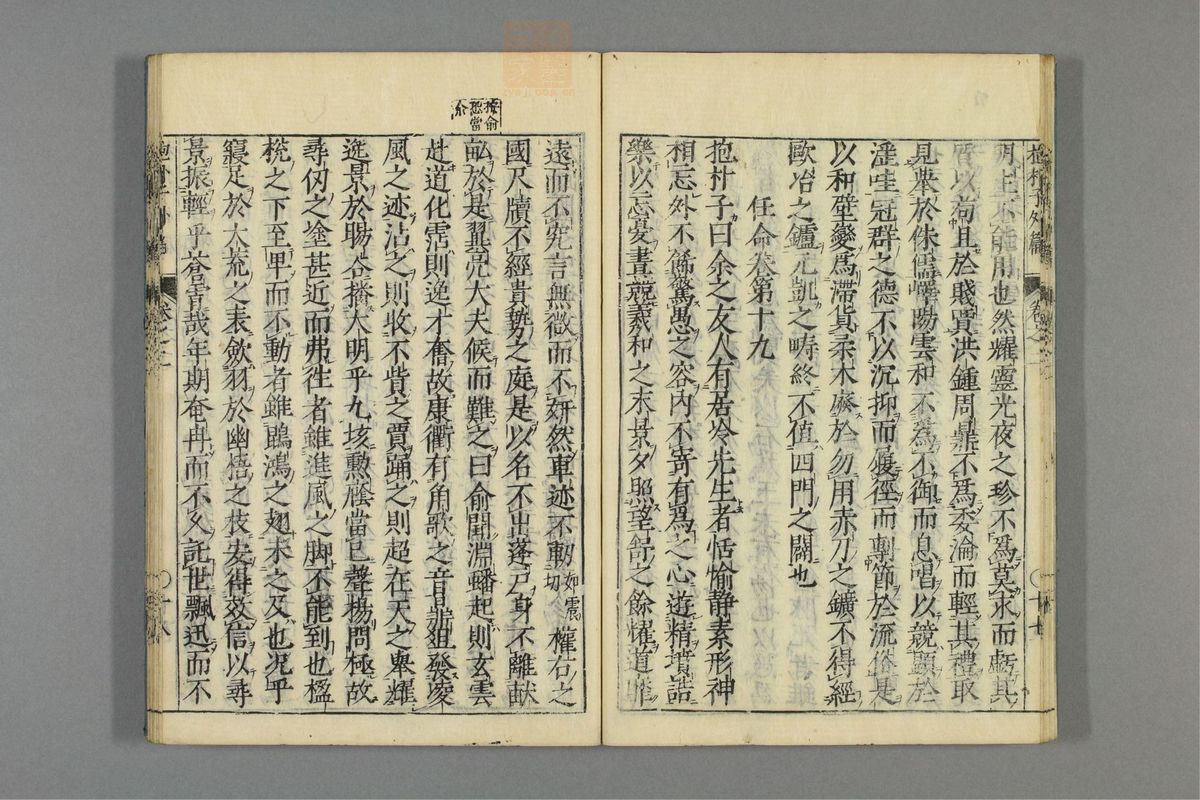 抱朴子外篇 卷之二 〇 十七
明主不能用也然耀靈光夜之珍不爲莫求而虧其
質以苟且於賤賈洪鍾周鼎不爲委淪而輕其禮取
見舉於侏儒嶧陽雲和不爲不御而息唱以競顯於
淫哇冠群之德不以沉抑而履徑而剸節於流俗是
以和璧變爲滯貨柔木廢於勿用赤刀之鑛不得經
歐冶之鑪元凱之疇終不值四門之闢也
任命卷第十九
抱朴子曰余之友人有居泠先生者恬愉静素形神
相忘外不飾驚愚之容內不寄有爲之心遊精墳誥
樂以忘憂晝競羲和之末景夕照望舒之餘耀道靡
遠而不究言無微而不妍然車迹不軔如震切權右之
國尺牘不經貴勢之庭是以名不出蓬戶身不離畎
畝於是翼亮大夫候而難之曰俞聞淵蟠起則玄雲
赴道化霑則逸才奮故康衢有角歌之音鼎俎發凌
風之迹沽之則收不貲之賈踊之則超在天之舉耀
逸景於暘谷播大明乎九垓勲廕當已聲揚罔極故
尋仞之塗甚近而弗徃者雖進風之脚不能到也楹
梲之下至卑而不動者雖鵾鴻之翅未之及也况乎
寢足於大荒之表斂羽於幽梧之枝安得效信以尋
景振輕乎蒼霄哉年期奄冉而不久託世飄迅而不
按俞
恐當
介
抱朴子外篇 卷之二 〇 十八